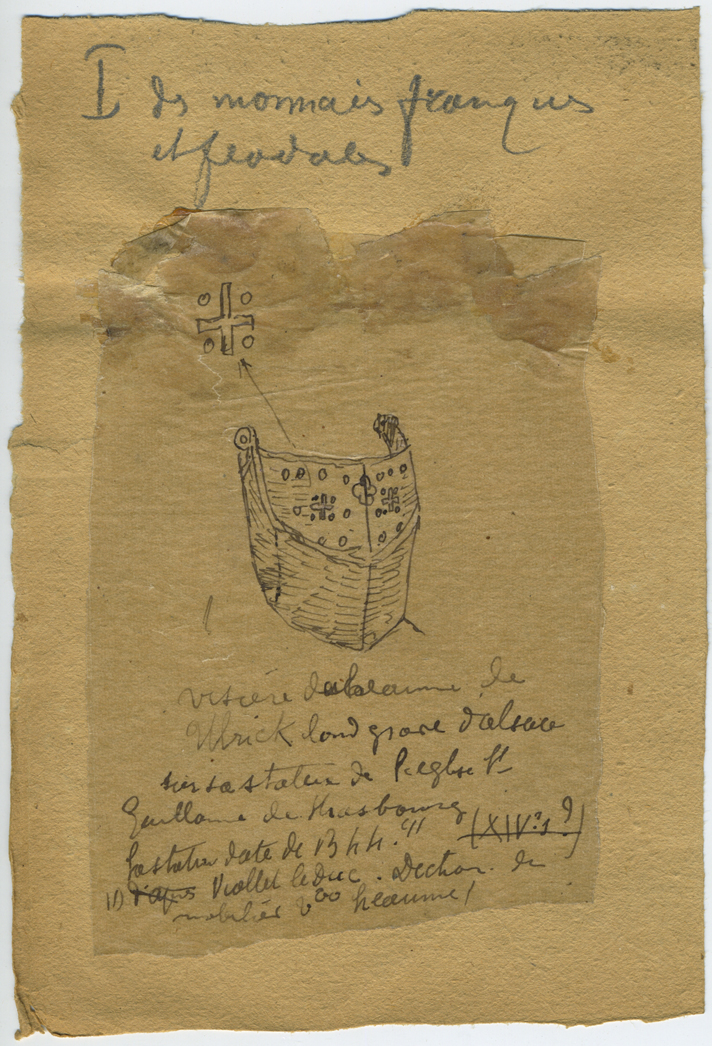 I des monnais franques
et feodales
visière du heaume de
Ulrick landgrave d'alsace
sur sa statue de l'eglise St
Guillaume de Strasbourg
(XIVe s ?)
la statue date de 1344. (1)
(1) d'apres Viollet le duc. Diction. de
mobilier Vo heaume)